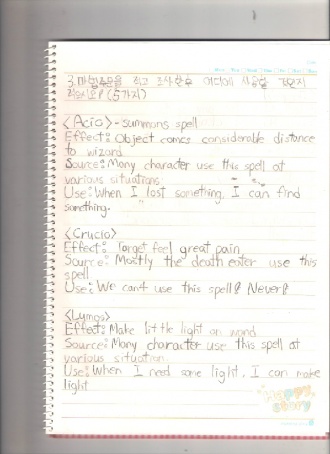 3. 마법주문을 적고 조사한후 어디에 사용할 것인지
쓰시오! (5가지)
<Acio> - summons spell
Effect: Object comes considerable distance
to wizard
Source: Many character use this spell at
various situations
Use: When I lost something, I can find
something.
<Crucio>
Effect: Target feel great pain
Source: Mostly the death eater use this
spell
Use: We cant use this spell! Never!
<Lumos>
Effect: Make little light on wand
Source: Many character use this spell at
various situation.
Use: When I need some light, I can make
light
Happy
story